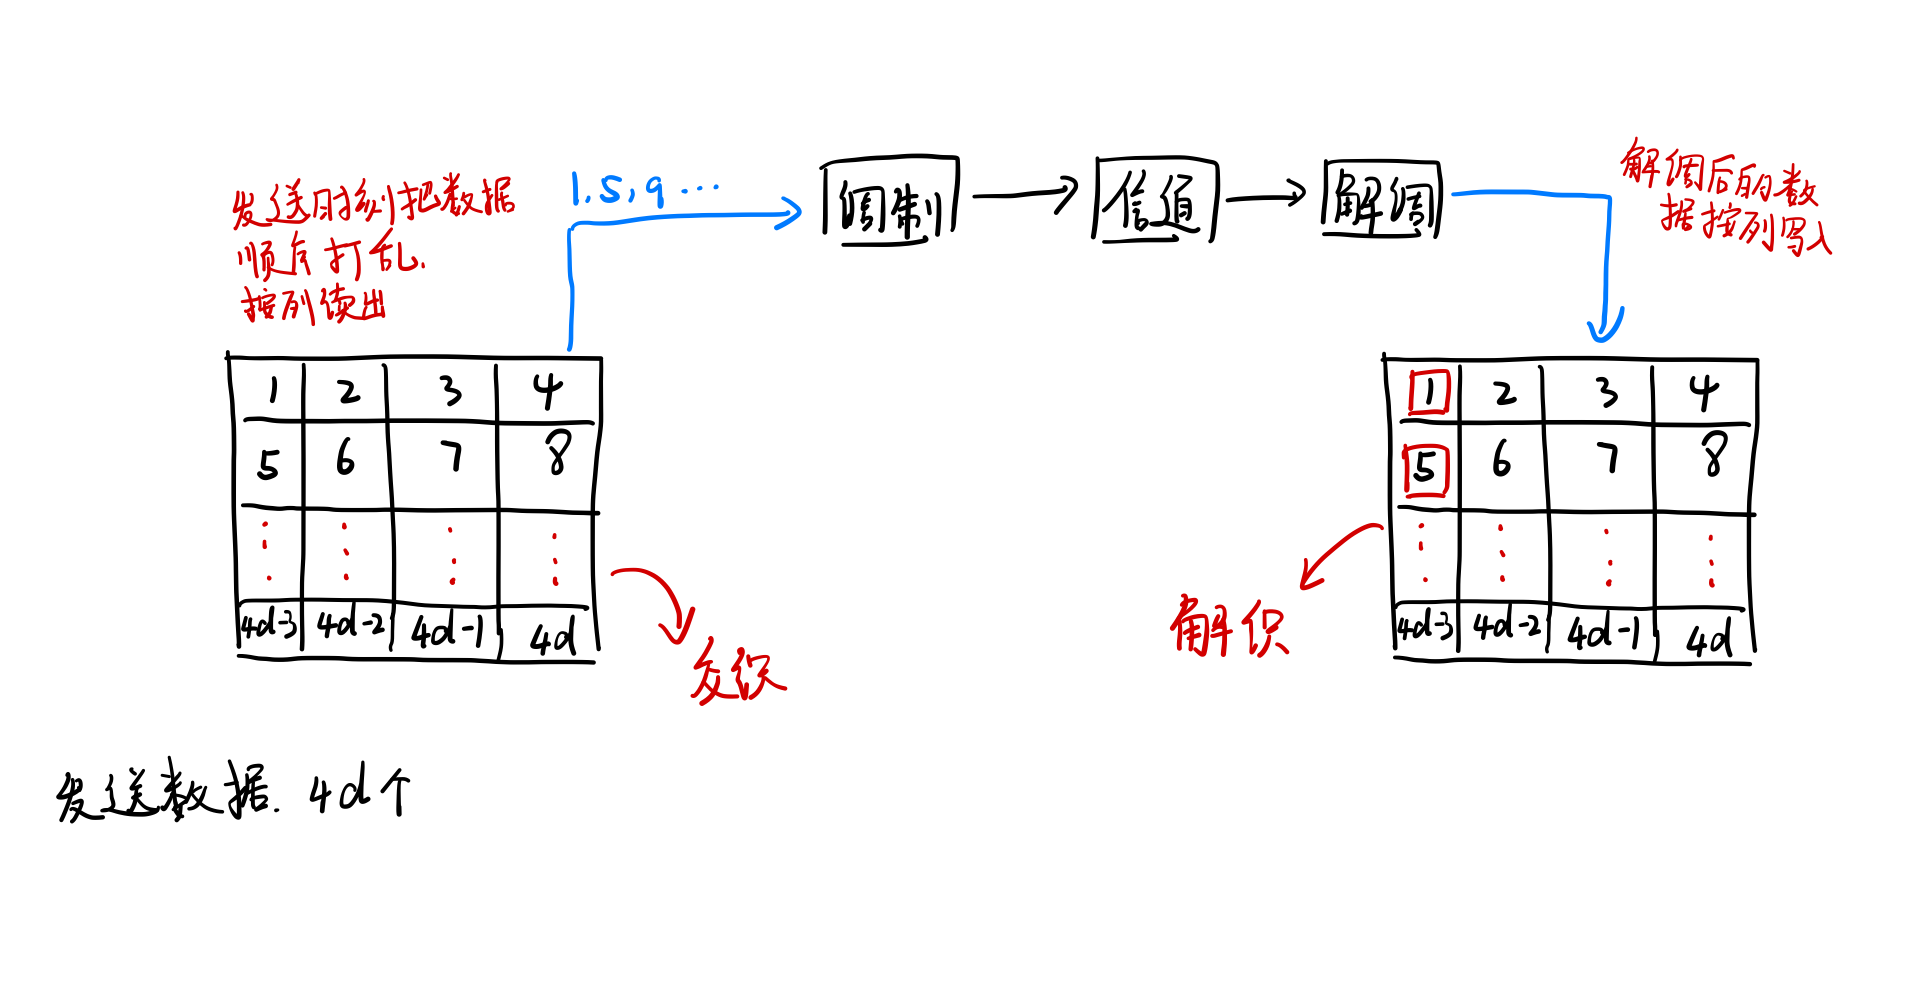 发送时刻把数据
顺序打乱.
按列读出
1,5,9...
调制
信道
解调
解调后的数
据按列写入
1 2 3 4
5 6 7 8
4d-3 4d-2 4d-1 4d
交织
1 2 3 4
5 6 7 8
4d-3 4d-2 4d-1 4d
解织
发送数据. 4d个